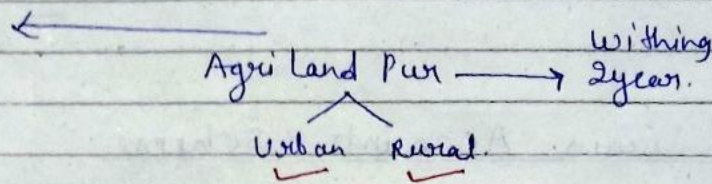 Agri Land Pur → Withing 2year.
Urban Rural.